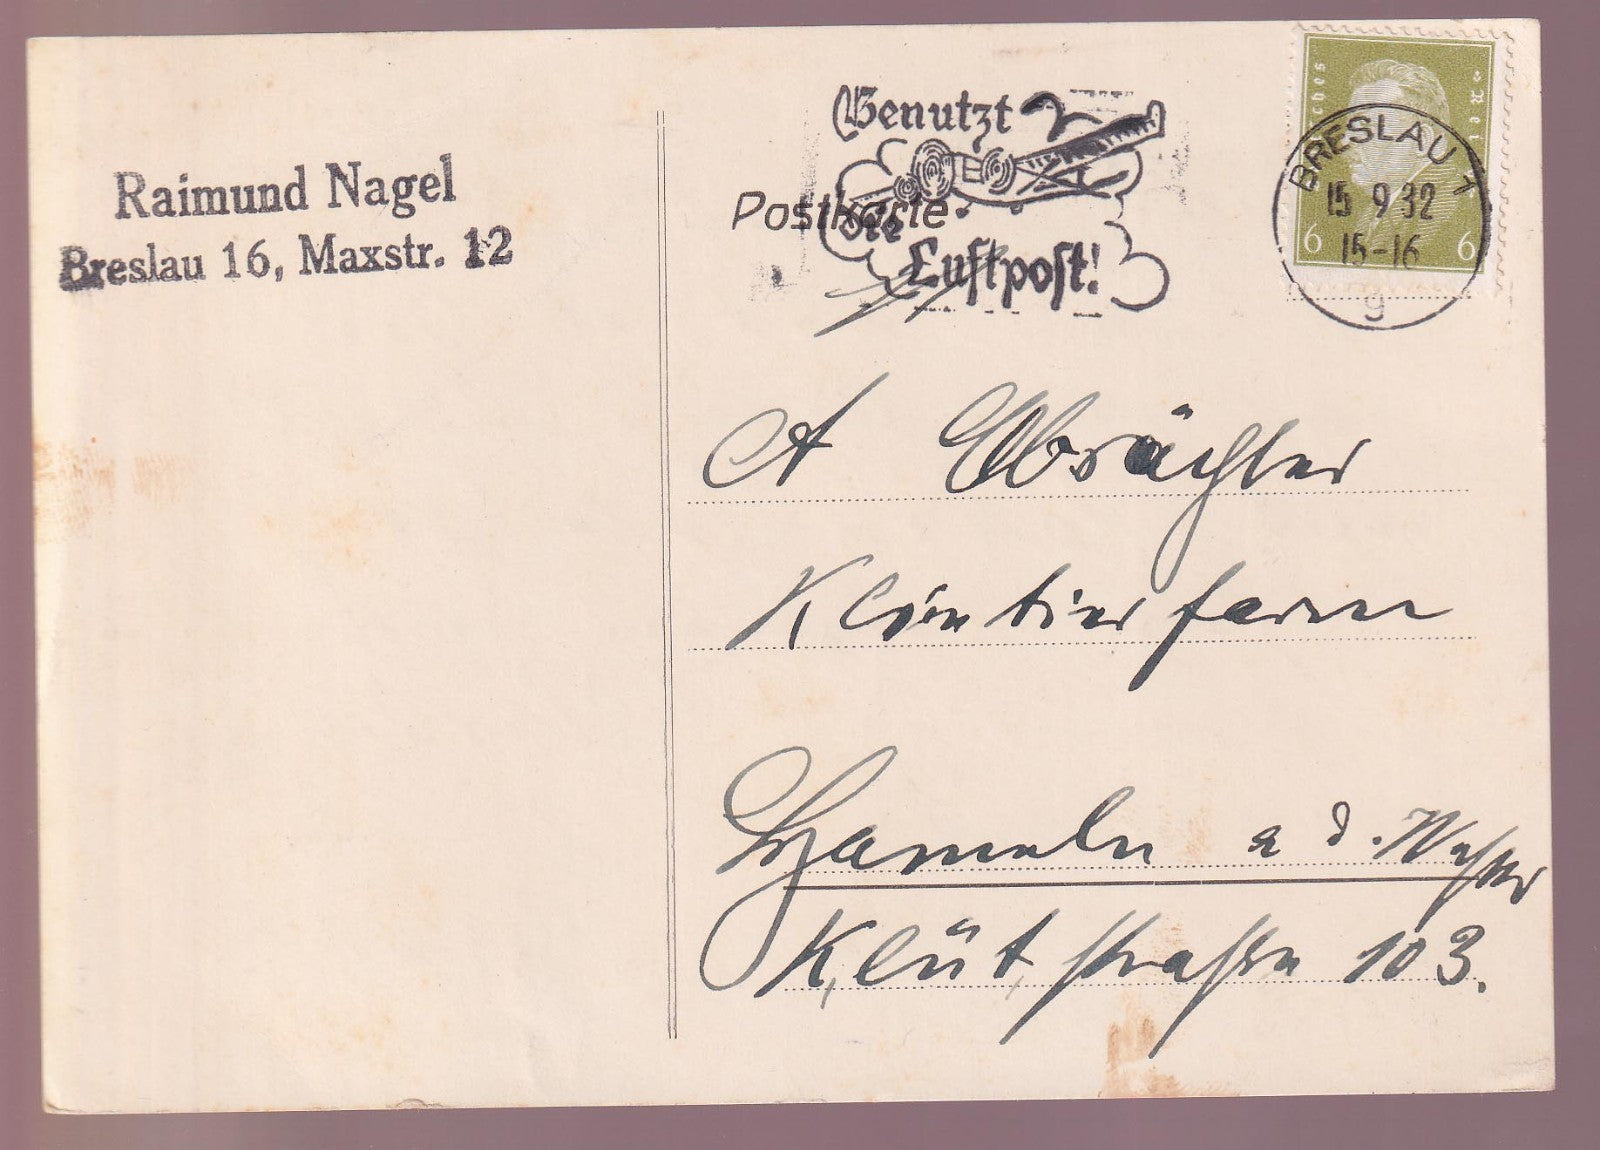 Raimund Nagel
Breslau 16, Maxstr. 12
Benutzt
die
Luftpost!
Postkarte
BRESLAU 1
15 9 32
15-16
g
6 6
A
Kleintierfarm
Hameln a d. Weser
Klütstraße 103.